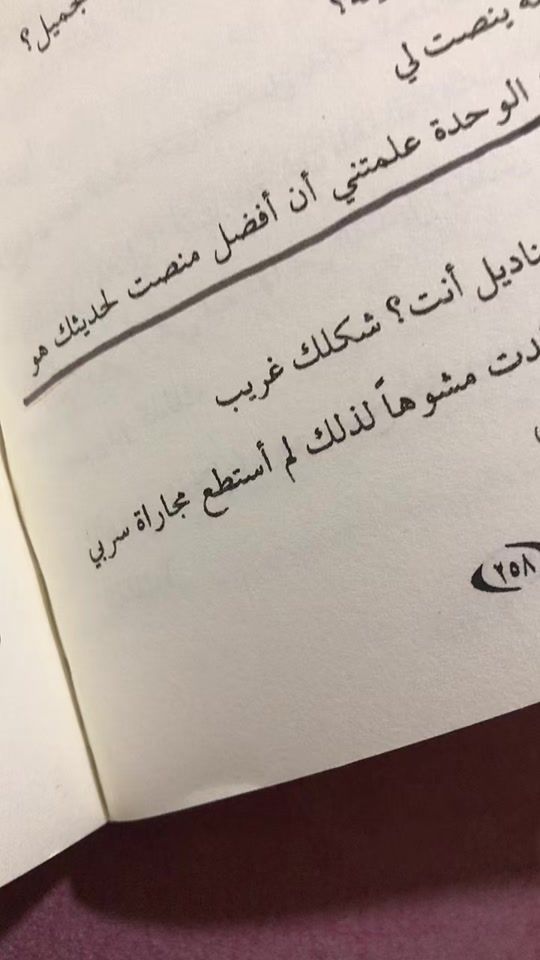 ينصت لي
الوحدة علمتني أن أفضل منصت لحديثك هو
أنت؟ شكلك غريب
مشوهاً لذلك لم أستطع مجاراة سربي
٢٥٨